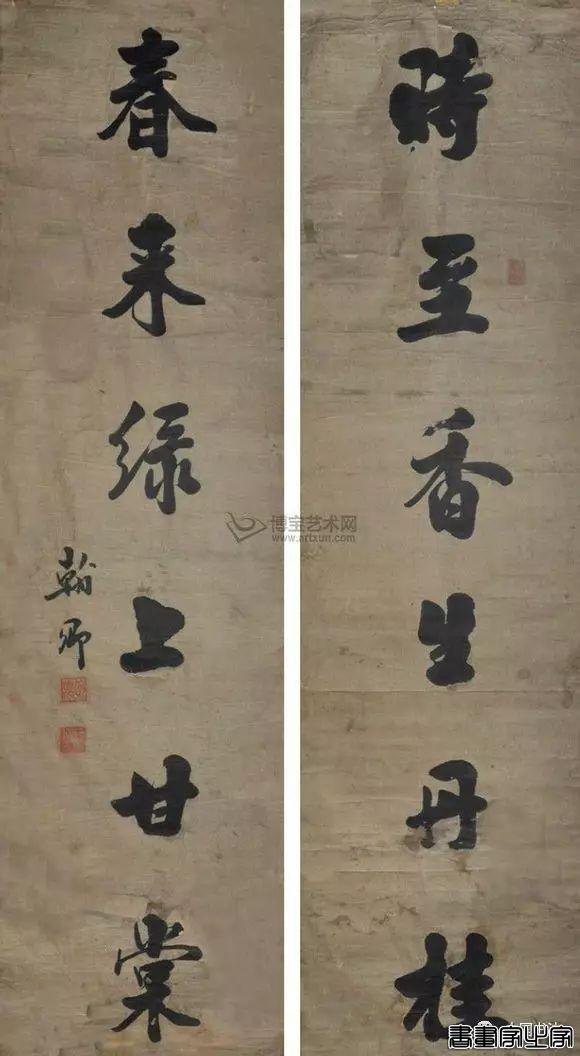 時至香生丹桂
春来緑上甘棠
翰卿
博宝艺术网
www.artxun.com
書畫字业字